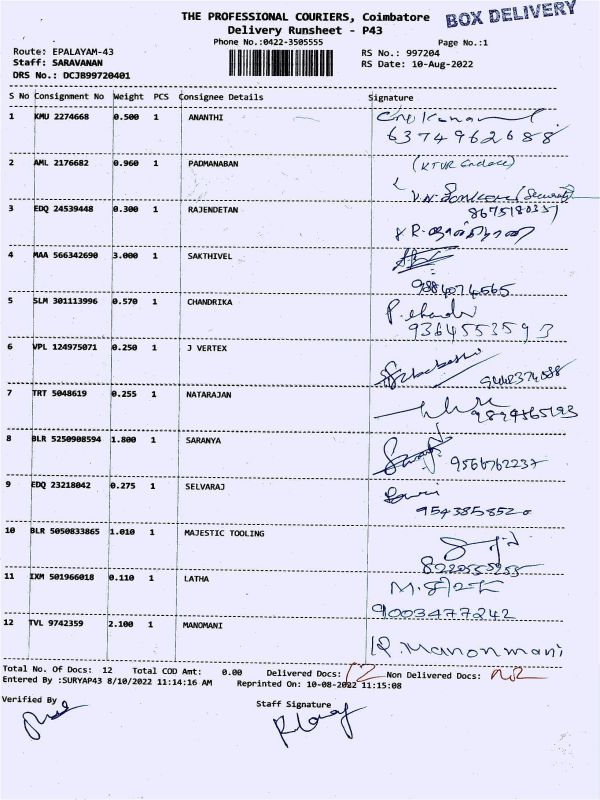 THE PROFESSIONAL COURIERS, Coimbatore
BOX DELIVERY
Delivery Runsheet - P43
Phone No.:0422-3505555
Page No.:1
Route: EPALAYAM-43
RS No.: 997204
Staff: SARAVANAN
RS Date: 10-Aug-2022
DRS No.: DCJB99720401
S No Consignment No Weight PCS Consignee Details Signature
1 KMU 2274668 0.500 1 ANANTHI
6374962688
2 AML 2176682 0.960 1 PADMANABAN
(Security)
3 EDQ 24539448 0.300 1 RAJENDETAN
4 MAA 566342690 3.000 1 SAKTHIVEL
9884074565
5 SLM 301113996 0.570 1 CHANDRIKA
9364553593
6 VPL 124975071 0.250 1 J VERTEX
7 TRT 5048619 0.255 1 NATARAJAN
8 BLR 5250908594 1.800 1 SARANYA
9566762237
9 EDQ 23218042 0.275 1 SELVARAJ
9543858520
10 BLR 5050833865 1.010 1 MAJESTIC TOOLING
8220555255
11 IXM 501966018 0.110 1 LATHA
9003477242
12 TVL 9742359 2.100 1 MANOMANI
R. Manonmani
Total No. Of Docs: 12 Total COD Amt: 0.00 Delivered Docs: 12 Non Delivered Docs:
Entered By :SURYAP43 8/10/2022 11:14:16 AM Reprinted On: 10-08-2022 11:15:08
Verified By
Staff Signature